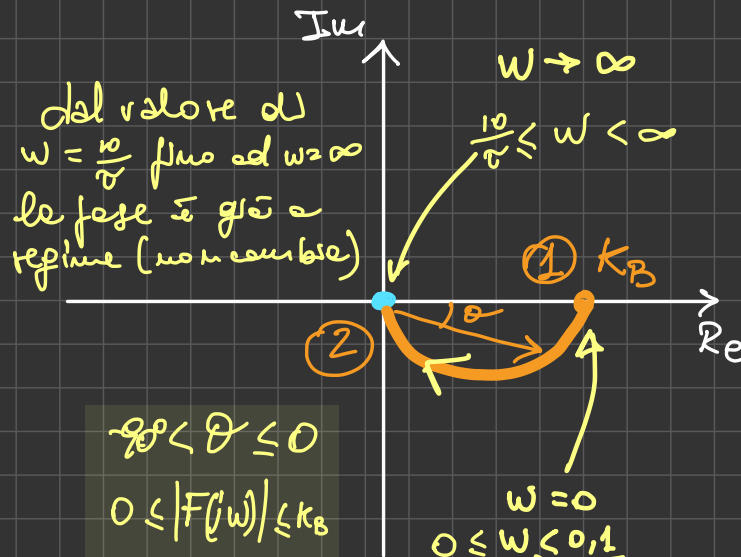 Im
w → ∞
10/τ ≤ w < ∞
dal valore di
w = 10/τ fino ad w=∞
la fase è già a
regime (non cambia)
① K_B
θ
Re
②
-90° < θ ≤ 0
0 ≤ |F(jw)| ≤ K_B
w = 0
0 ≤ w ≤ 0,1